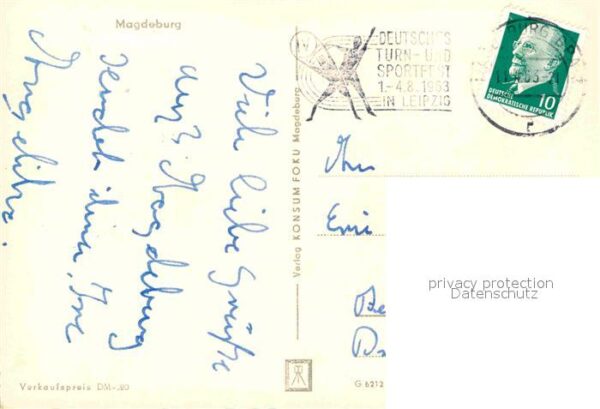 Magdeburg
DEUTSCHES
TURN- UND
SPORTFEST
1.-4.8.1963
IN LEIPZIG
DEUTSCHE
DEMOKRATISCHE REPUBLIK
10
Viele liebe Grüße
aus Magdeburg
sendet Ihnen, Ihre
Angelika.
Verlag KONSUM FOKU Magdeburg
An
privacy protection
Datenschutz
Verkaufspreis DM -.20
G 6212